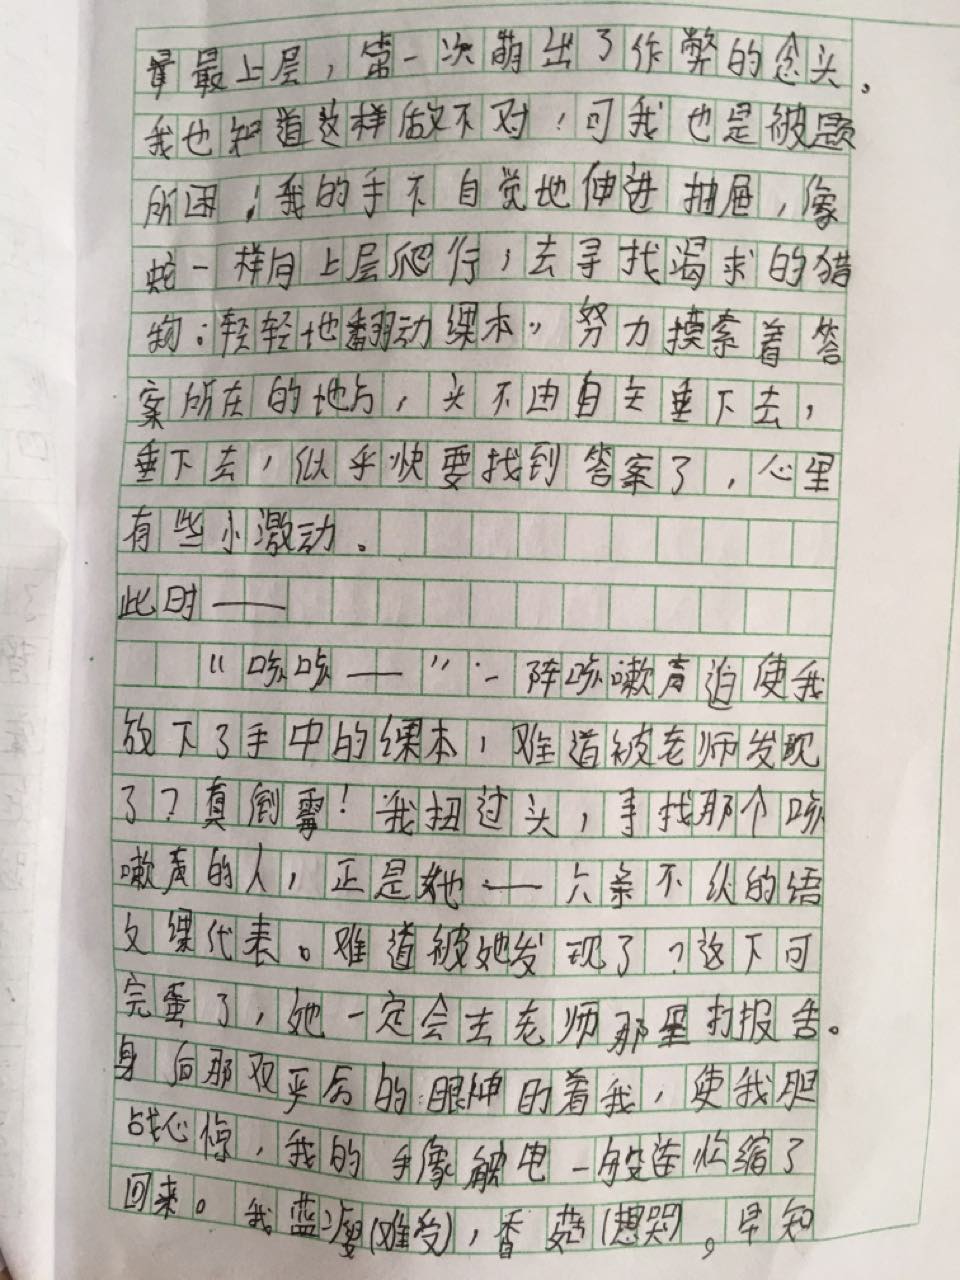 最上层，第一次萌出了作弊的念头。
我也知道这样做不对，可我也是被题
所困；我的手不自觉地伸进抽屉，像
蛇一样向上层爬行，去寻找渴求的猎
物：轻轻地翻动课本，努力摸索着答
案所在的地方，头不由自主垂下去，
垂下去，似乎快要找到答案了，心里
有些小激动。
此时——
“咳咳——”一阵咳嗽声迫使我
放下了手中的课本，难道被老师发现
了？真倒霉！我扭过头，寻找那个咳
嗽声的人，正是她——六亲不认的语
文课代表。难道被她发现了？这下可
完蛋了，她一定会去老师那里打报告。
身后那双严厉的眼神盯着我，使我胆
战心惊，我的手像触电一般连忙缩了
回来。我蓝瘦(难受)，香菇(想哭)。早知